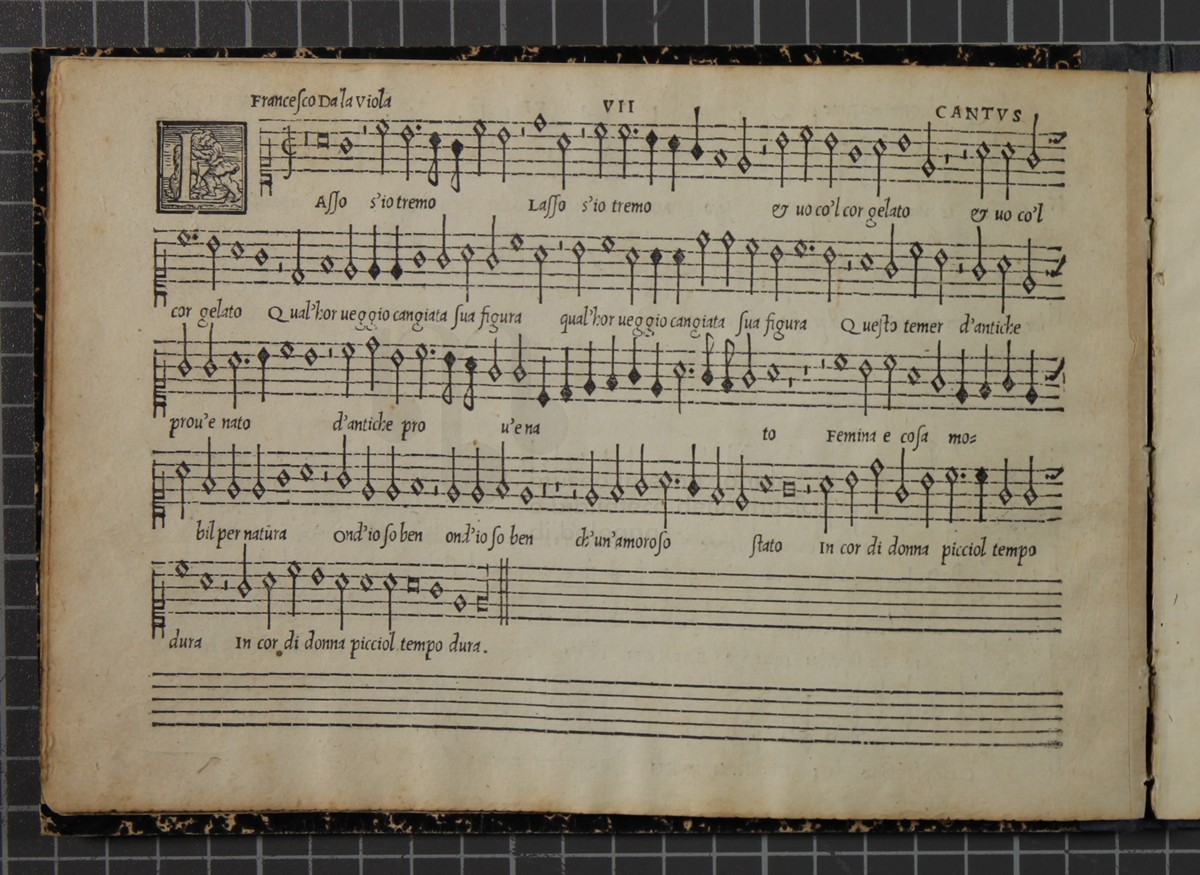 Francesco Da la Viola VII CANTVS
L Asso s'io tremo Lasso s'io tremo & uo co'l cor gelato & uo co'l
cor gelato Qual'hor ueggio cangiata sua figura qual'hor ueggio cangiata sua figura Questo temer d'antiche
proue nato d'antiche pro u'e na to Femina e cosa mo=
bil per natura ond'io so ben ond'io so ben ch'un'amoroso stato In cor di donna picciol tempo
dura In cor di donna picciol tempo dura.